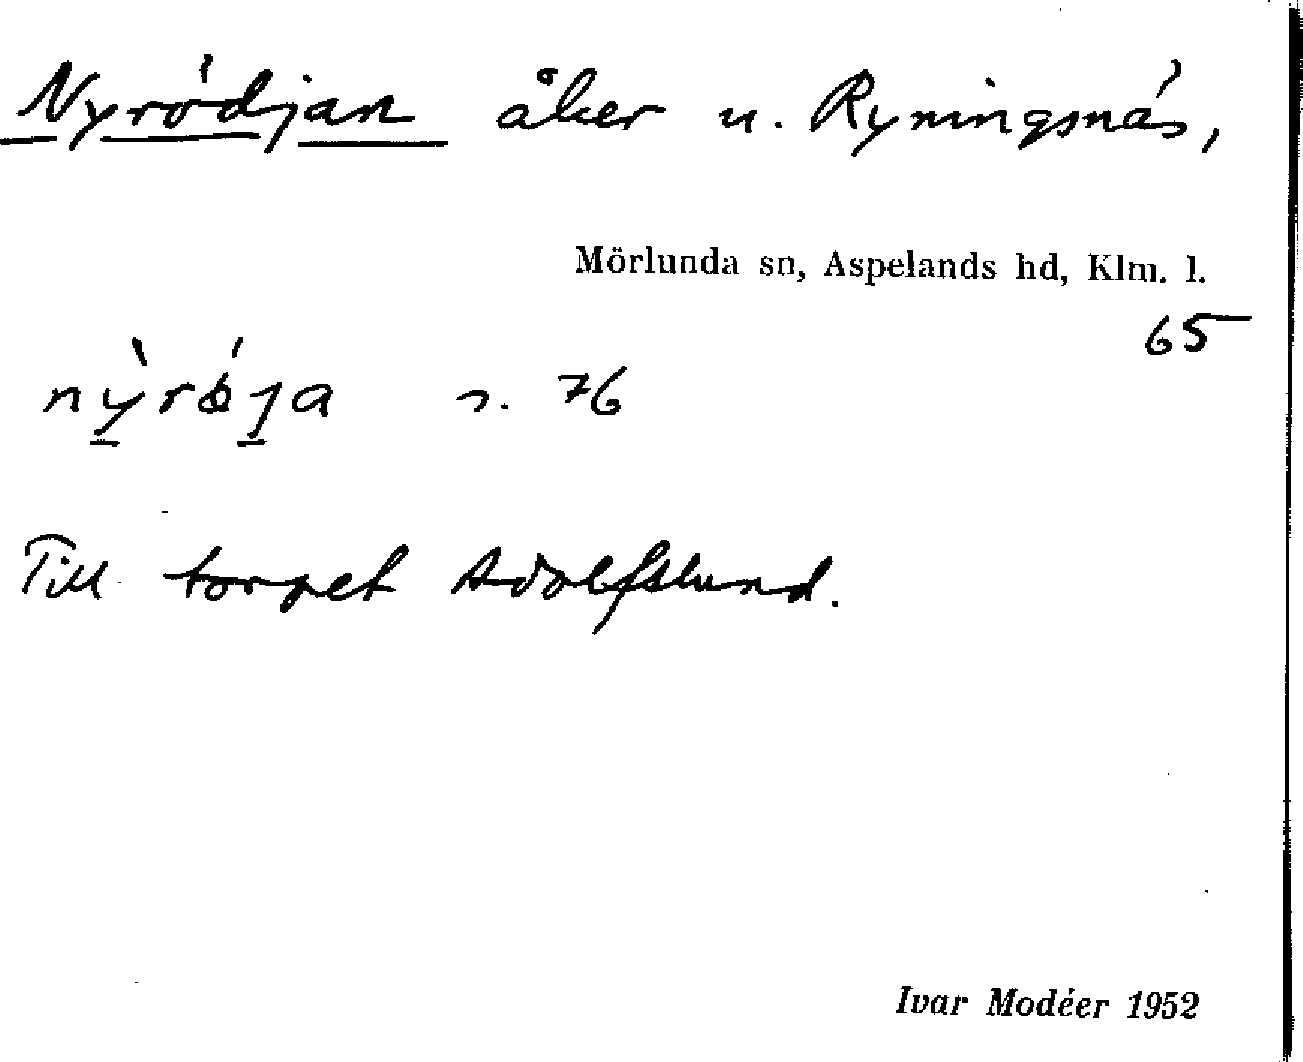 Nyrödjan åker u. Ryningsnäs,
Mörlunda sn, Aspelands hd, Klm. l.
65
nỳrǿja s. 76
Till torpet Adolfslund.
Ivar Modéer 1952